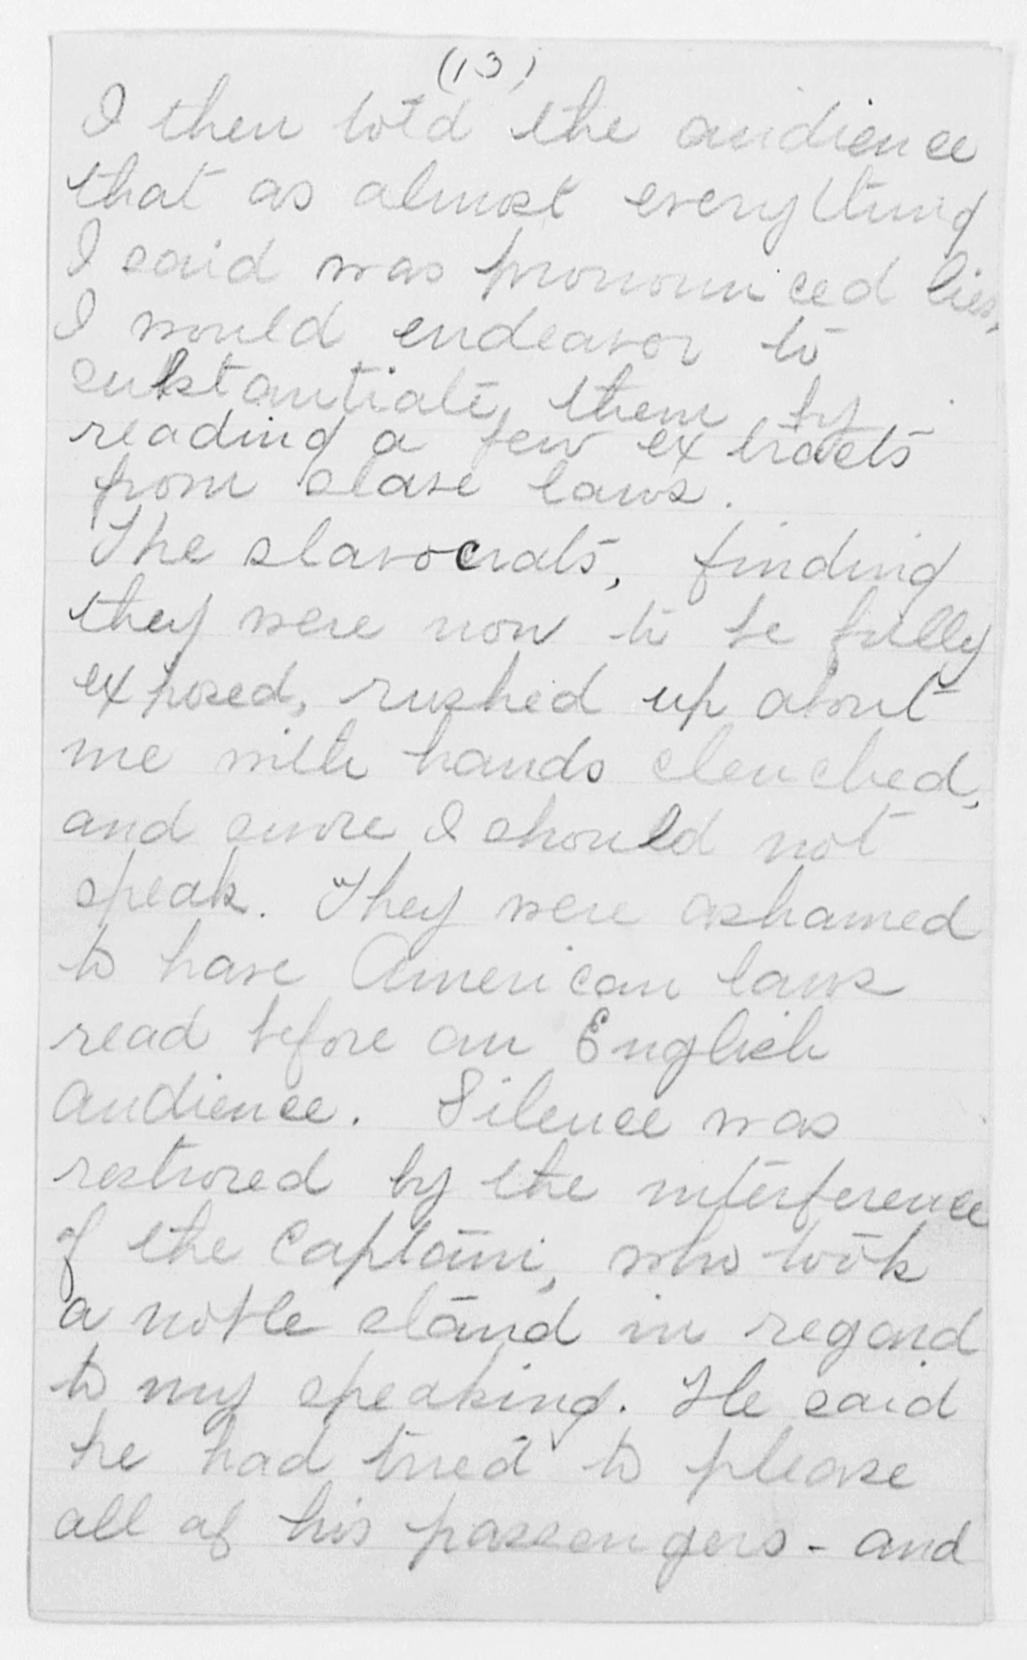 (13)
I then told the audience
that as almost everything
I said was pronounced lies,
I would endeavor to
substantiate them by
reading a few extracts
from slave laws.
The slavocrats, finding
they were now to be fully
exposed, rushed up about
me with hands clenched,
and swore I should not
speak. They were ashamed
to have American laws
read before an English
audience. Silence was
restored by the interference
of the Captain, who took
a noble stand in regard
to my speaking. He said
he had tried to please
all of his passengers - and